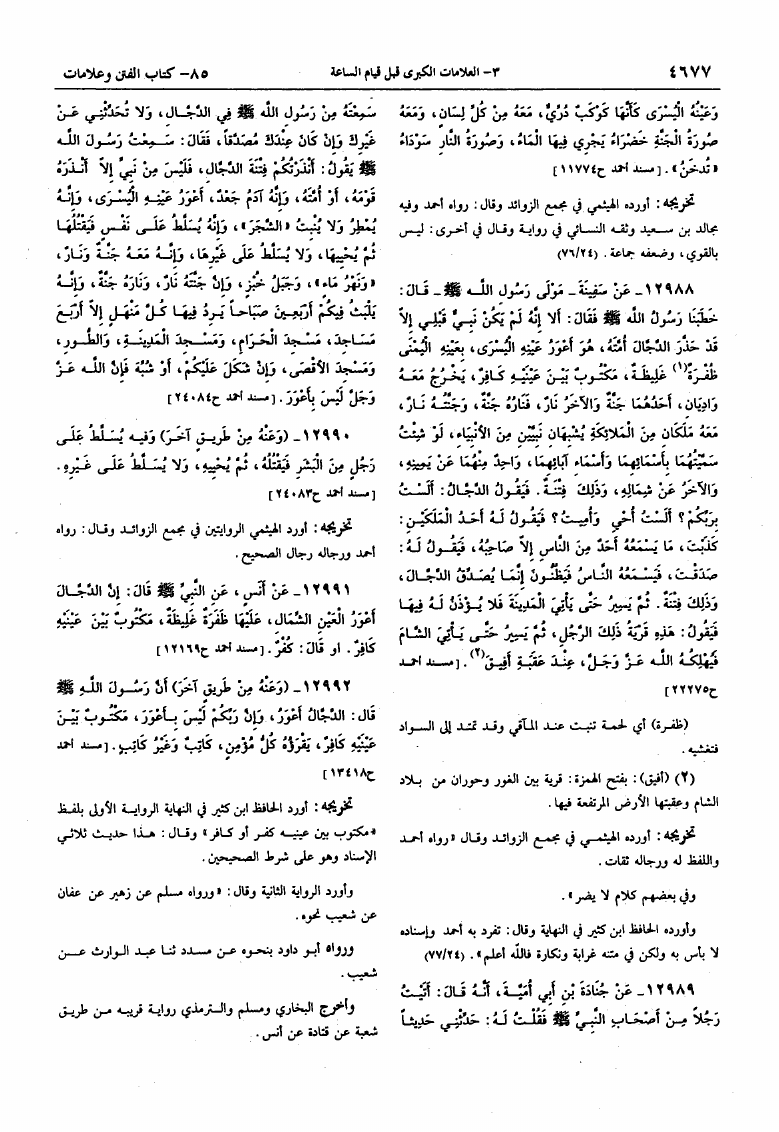 ٤٦٧٧
٣- العلامات الكبرى قبل قيام الساعة
٨٥- كتاب الفتن وعلامات
وَعَيْنُهُ الْيُسْرَى كَأَنَّهَا كَوْكَبٌ دُرِّيٌّ، مَعَهُ مِنْ كُلِّ لِسَانٍ، وَمَعَهُ
صُورَةُ الْجَنَّةِ خَضْرَاءُ يَجْرِي فِيهَا الْمَاءُ، وَصُورَةُ النَّارِ سَوْدَاءُ
«تُدخَنُ». [مسند أحمد ح١١٧٧٤]
تخريجه: أورده الهيثمي في مجمع الزوائد وقال: رواه أحمد وفيه
مجالد بن سعيد وثقه النسائي في رواية وقال في أخرى: ليس
بالقوي، وضعفه جماعة. (٧٦/٢٤)
١٢٩٨٨- عَنْ سَفِينَةَ- مَوْلَى رَسُولِ اللَّهِ ﷺ- قَالَ:
خَطَبَنَا رَسُولُ اللهِ ﷺ فَقَالَ: أَلا إِنَّهُ لَمْ يَكُنْ نَبِيٌّ قَبْلِي إِلاَّ
قَدْ حَذَّرَ الدَّجَّالَ أُمَّتَهُ، هُوَ أَعْوَرُ عَيْنِهِ الْيُسْرَى، بِعَيْنِهِ الْيُمْنَى
ظَفَرَةٌ(١) غَلِيظَةٌ، مَكْتُوبٌ بَيْنَ عَيْنَيْهِ كَافِرٌ، يَخْرُجُ مَعَهُ
وَادِيَانِ، أَحَدُهُمَا جَنَّةٌ وَالآخَرُ نَارٌ، فَنَارُهُ جَنَّةٌ، وَجَنَّتُهُ نَارٌ،
مَعَهُ مَلَكَانِ مِنَ الْمَلائِكَةِ يُشْبِهَانِ نَبِيَّيْنِ مِنَ الأَنْبِيَاءِ، لَوْ شِئْتُ
سَمَّيْتُهُمَا بِأَسْمَائِهِمَا وَأَسْمَاءِ آبَائِهِمَا، وَاحِدٌ مِنْهُمَا عَنْ يَمِينِهِ،
وَالآخَرُ عَنْ شِمَالِهِ، وَذَلِكَ فِتْنَةٌ. فَيَقُولُ الدَّجَّالُ: أَلَسْتُ
بِرَبِّكُمْ؟ أَلَسْتُ أُحْيِ وَأُمِيتُ؟ فَيَقُولُ لَهُ أَحَدُ الْمَلَكَيْنِ:
كَذَبْتَ، مَا يَسْمَعُهُ أَحَدٌ مِنَ النَّاسِ إِلاَّ صَاحِبُهُ، فَيَقُولُ لَهُ:
صَدَقْتَ، فَيَسْمَعُهُ النَّاسُ فَيَظُنُّونَ إِنَّمَا يُصَدِّقُ الدَّجَّالَ،
وَذَلِكَ فِتْنَةٌ. ثُمَّ يَسِيرُ حَتَّى يَأْتِيَ الْمَدِينَةَ فَلا يُؤْذَنُ لَهُ فِيهَا
فَيَقُولُ: هَذِهِ قَرْيَةُ ذَلِكَ الرَّجُلِ، ثُمَّ يَسِيرُ حَتَّى يَأْتِيَ الشَّامَ
فَيُهْلِكُهُ اللَّهُ عَزَّ وَجَلَّ، عِنْدَ عَقَبَةِ أَفِيقَ(٢). [مسند أحمد
ح٢٢٢٧٥]
(ظفرة) أي لحمة تنبت عند المآقي وقد تمتد إلى السواد
فتغشيه.
(٢) (أفيق): بفتح الهمزة: قرية بين الغور وحوران من بلاد
الشام وعقبتها الأرض المرتفعة فيها.
تخريجه: أورده الهيثمي في مجمع الزوائد وقال «رواه أحمد
واللفظ له ورجاله ثقات.
وفي بعضهم كلام لا يضر».
وأورده الحافظ ابن كثير في النهاية وقال: تفرد به أحمد وإسناده
لا بأس به ولكن في متنه غرابة ونكارة فالله أعلم». (٧٧/٢٤)
١٢٩٨٩- عَنْ جُنَادَةَ بْنِ أَبِي أُمَيَّةَ، أَنَّهُ قَالَ: أَتَيْتُ
رَجُلاً مِنْ أَصْحَابِ النَّبِيِّ ﷺ فَقُلْتُ لَهُ: حَدِّثْنِي حَدِيثاً
سَمِعْتَهُ مِنْ رَسُولِ اللَّهِ ﷺ فِي الدَّجَّالِ، وَلا تُحَدِّثْنِي عَنْ
غَيْرِكَ وَإِنْ كَانَ عِنْدَكَ مُصَدَّقاً، فَقَالَ: سَمِعْتُ رَسُولَ اللَّهِ
ﷺ يَقُولُ: أَنْذَرْتُكُمْ فِتْنَةَ الدَّجَّالِ، فَلَيْسَ مِنْ نَبِيٍّ إِلاَّ أَنْذَرَهُ
قَوْمَهُ، أَوْ أُمَّتَهُ، وَإِنَّهُ آدَمُ جَعْدٌ، أَعْوَرُ عَيْنِهِ الْيُسْرَى، وَإِنَّهُ
يُمْطِرُ وَلا يُنْبِتُ «الشَّجَرَ»، وَإِنَّهُ يُسَلَّطُ عَلَى نَفْسٍ فَيَقْتُلُهَا
ثُمَّ يُحْيِيهَا، وَلا يُسَلَّطُ عَلَى غَيْرِهَا، وَإِنَّهُ مَعَهُ جَنَّةٌ وَنَارٌ،
«وَنَهْرُ مَاءٍ»، وَجَبَلُ خُبْزٍ، وَإِنَّ جَنَّتَهُ نَارٌ، وَنَارَهُ جَنَّةٌ، وَإِنَّهُ
يَلْبَثُ فِيكُمْ أَرْبَعِينَ صَبَاحاً يَرِدُ فِيهَا كُلَّ مَنْهَلٍ إِلاَّ أَرْبَعَ
مَسَاجِدَ، مَسْجِدَ الْحَرَامِ، وَمَسْجِدَ الْمَدِينَةِ، وَالطُّورِ،
وَمَسْجِدَ الأَقْصَى، وَإِنْ شَكَلَ عَلَيْكُمْ، أَوْ شُبِّهَ فَإِنَّ اللَّهَ عَزَّ
وَجَلَّ لَيْسَ بِأَعْوَرَ. [مسند أحمد ح٢٤٠٨٤]
١٢٩٩٠- (وَعَنْهُ مِنْ طَرِيقٍ آخَرَ) وَفِيهِ يُسَلَّطُ عَلَى
رَجُلٍ مِنَ الْبَشَرِ فَيَقْتُلُهُ، ثُمَّ يُحْيِيهِ، وَلا يُسَلَّطُ عَلَى غَيْرِهِ.
[مسند أحمد ح٢٤٠٨٣]
تخريجه: أورد الهيثمي الروايتين في مجمع الزوائد وقال: رواه
أحمد ورجاله رجال الصحيح.
١٢٩٩١- عَنْ أَنَسٍ، عَنِ النَّبِيِّ ﷺ قَالَ: إِنَّ الدَّجَّالَ
أَعْوَرُ الْعَيْنِ الشِّمَالِ، عَلَيْهَا ظَفَرَةٌ غَلِيظَةٌ، مَكْتُوبٌ بَيْنَ عَيْنَيْهِ
كَافِرٌ. او قَالَ: كُفْرٌ. [مسند أحمد ح١٢١٦٩]
١٢٩٩٢- (وَعَنْهُ مِنْ طَرِيقٍ آخَرَ) أَنَّ رَسُولَ اللَّهِ ﷺ
قَالَ: الدَّجَّالُ أَعْوَرُ، وَإِنَّ رَبَّكُمْ لَيْسَ بِأَعْوَرَ، مَكْتُوبٌ بَيْنَ
عَيْنَيْهِ كَافِرٌ، يَقْرَؤُهُ كُلُّ مُؤْمِنٍ، كَاتِبٌ وَغَيْرُ كَاتِبٍ. [مسند أحمد
ح١٣٤١٨]
تخريجه: أورد الحافظ ابن كثير في النهاية الرواية الأولى بلفظ
«مكتوب بين عينيه كفر أو كافر» وقال: هذا حديث ثلاثي
الإسناد وهو على شرط الصحيحين.
وأورد الرواية الثانية وقال: «ورواه مسلم عن زهير عن عفان
عن شعيب نحوه.
ورواه أبو داود بنحوه عن مسدد ثنا عبد الوارث عن
شعيب.
وأخرج البخاري ومسلم والترمذي رواية قريبه من طريق
شعبة عن قتادة عن أنس.